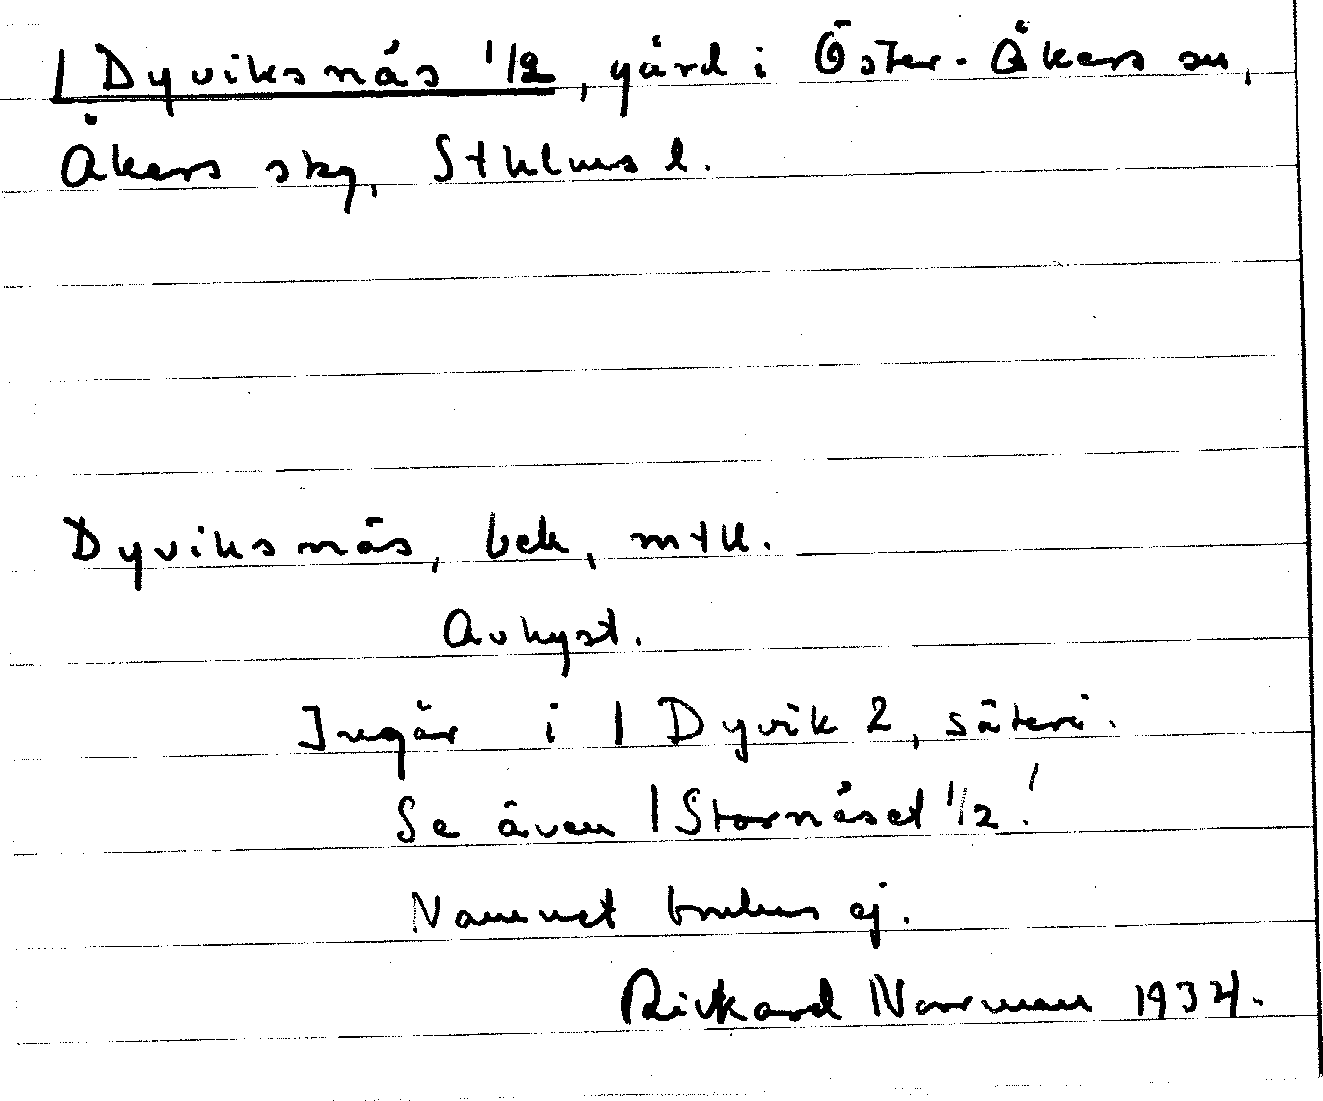 1 Dyviksnäs 1/2, gård i Öster-Åkers sn,
Åkers skg, Sthlms l.
Dyviksnäs, bek, mtll.
Avhyst.
Ingår i 1 Dyvik 2, säteri.
Se även 1 Stornäset 1/2!
Namnet brukas ej.
Rickard Norrman 1934.